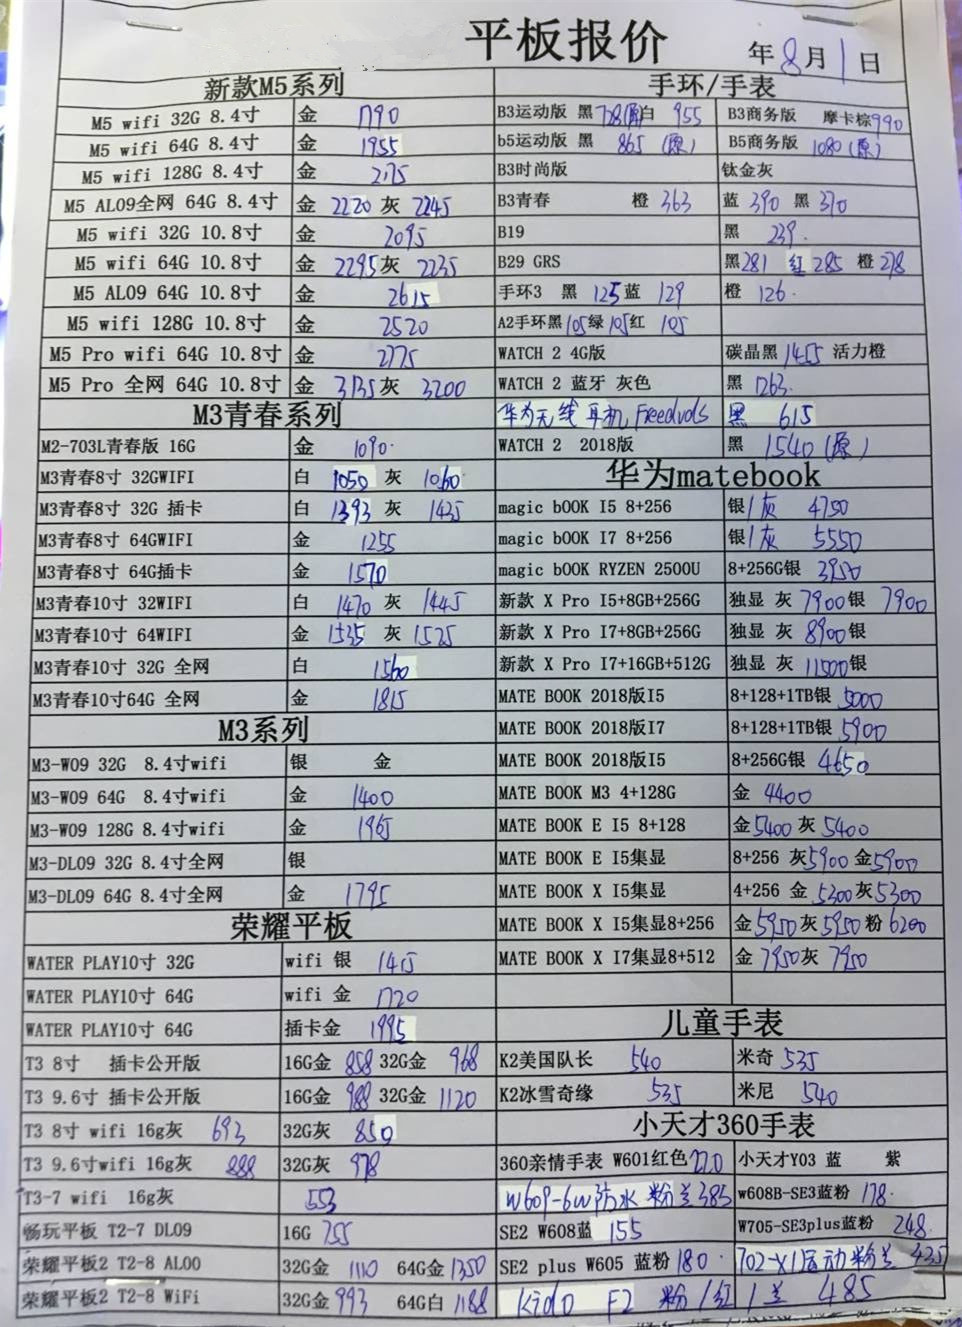 平板报价
年8月1日
新款M5系列
M5 wifi 32G 8.4寸 金 1790
M5 wifi 64G 8.4寸 金 1955
M5 wifi 128G 8.4寸 金 2175
M5 AL09全网 64G 8.4寸 金 2220 灰 2245
M5 wifi 32G 10.8寸 金 2095
M5 wifi 64G 10.8寸 金 2295 灰 2235
M5 AL09 64G 10.8寸 金 2615
M5 wifi 128G 10.8寸 金 2520
M5 Pro wifi 64G 10.8寸 金 2775
M5 Pro 全网 64G 10.8寸 金 3135 灰 3200
M3青春系列
M2-703L青春版 16G 金 1090
M3青春8寸 32GWIFI 白 1050 灰 1060
M3青春8寸 32G 插卡 白 1393 灰 1435
M3青春8寸 64GWIFI 金 1255
M3青春8寸 64G插卡 金 1570
M3青春10寸 32WIFI 白 1470 灰 1445
M3青春10寸 64WIFI 金 1535 灰 1525
M3青春10寸 32G 全网 白 1560
M3青春10寸64G 全网 金 1815
M3系列
M3-W09 32G 8.4寸wifi 银 金
M3-W09 64G 8.4寸wifi 金 1400
M3-W09 128G 8.4寸wifi 金 1965
M3-DL09 32G 8.4寸全网 银
M3-DL09 64G 8.4寸全网 金 1795
荣耀平板
WATER PLAY10寸 32G wifi 银 1415
WATER PLAY10寸 64G wifi 金 1720
WATER PLAY10寸 64G 插卡金 1995
T3 8寸 插卡公开版 16G金 858 32G金 968
T3 9.6寸 插卡公开版 16G金 988 32G金 1120
T3 8寸 wifi 16g灰 693 32G灰 850
T3 9.6寸wifi 16g灰 888 32G灰 978
T3-7 wifi 16g灰 553
畅玩平板 T2-7 DL09 16G 755
荣耀平板2 T2-8 AL00 32G金 1110 64G金 1350
荣耀平板2 T2-8 WiFi 32G金 993 64G白 1188
手环/手表
B3运动版 黑 728(原)白 955 B3商务版 摩卡棕990
b5运动版 黑 865 (原) B5商务版 1080(原)
B3时尚版 钛金灰
B3青春 橙 363 蓝 390 黑 370
B19 黑 239
B29 GRS 黑281 红 285 橙 278
手环3 黑 125 蓝 129 橙 126
A2手环黑105绿105红 105
WATCH 2 4G版 碳晶黑 1455 活力橙
WATCH 2 蓝牙 灰色 黑 1263
华为无线耳机 Freedvds 黑 615
WATCH 2 2018版 黑 1540(原)
华为matebook
magic bOOK I5 8+256 银/灰 4750
magic bOOK I7 8+256 银/灰 5550
magic bOOK RYZEN 2500U 8+256G银 3950
新款 X Pro I5+8GB+256G 独显 灰 7900银 7900
新款 X Pro I7+8GB+256G 独显 灰 8900银
新款 X Pro I7+16GB+512G 独显 灰 11500银
MATE BOOK 2018版I5 8+128+1TB银 5000
MATE BOOK 2018版I7 8+128+1TB银 5900
MATE BOOK 2018版I5 8+256G银 4650
MATE BOOK M3 4+128G 金 4400
MATE BOOK E I5 8+128 金5400 灰5400
MATE BOOK E I5集显 8+256 灰5900 金5900
MATE BOOK X I5集显 4+256 金 5300灰5300
MATE BOOK X I5集显8+256 金5950灰5950粉6200
MATE BOOK X I7集显8+512 金 7950灰 7950
儿童手表
K2美国队长 540 米奇 535
K2冰雪奇缘 535 米尼 540
小天才360手表
360亲情手表 W601红色270 小天才Y03 蓝 紫
W609-6W防水 粉兰385 w608B-SE3蓝粉 178
SE2 W608蓝 155 W705-SE3plus蓝粉 248
SE2 plus W605 蓝粉 180 702-X1运动粉兰 435
Kido F2 粉/红/兰 485